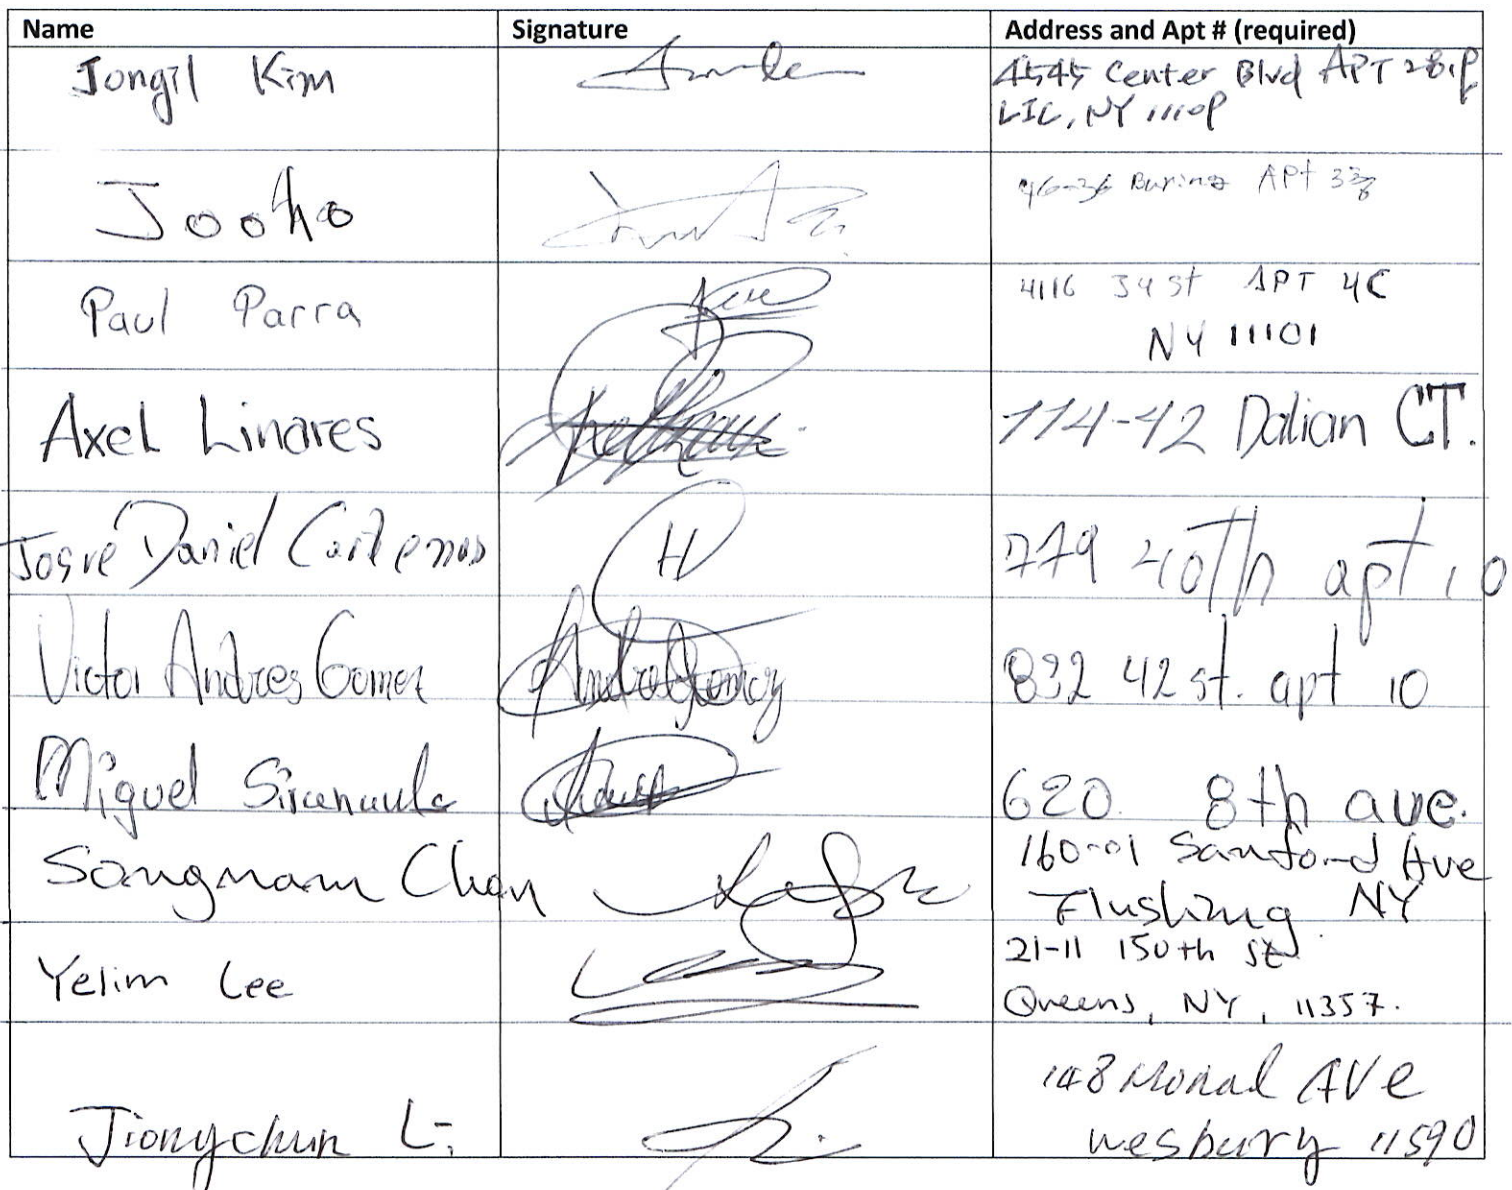 Name Signature Address and Apt # (required)
Jongil Kim 4545 Center Blvd APT
LIC, NY
Jooho 46-36 APt
Paul Parra 4116 34 st APT 4C
NY 11101
Axel Linares 114-42 Dalian CT.
Daniel 779 40Th apt 10
Victor Andres Gomez Gomez 832 42 st. apt 10
Miguel 620 8th ave.
Songnam Chon 160-01 Sanford Ave
Flushing NY
Yelim Lee 21-11 150th st
Queens, NY, 11357.
Jiongchun Li 148 Ave
wesbury 11590